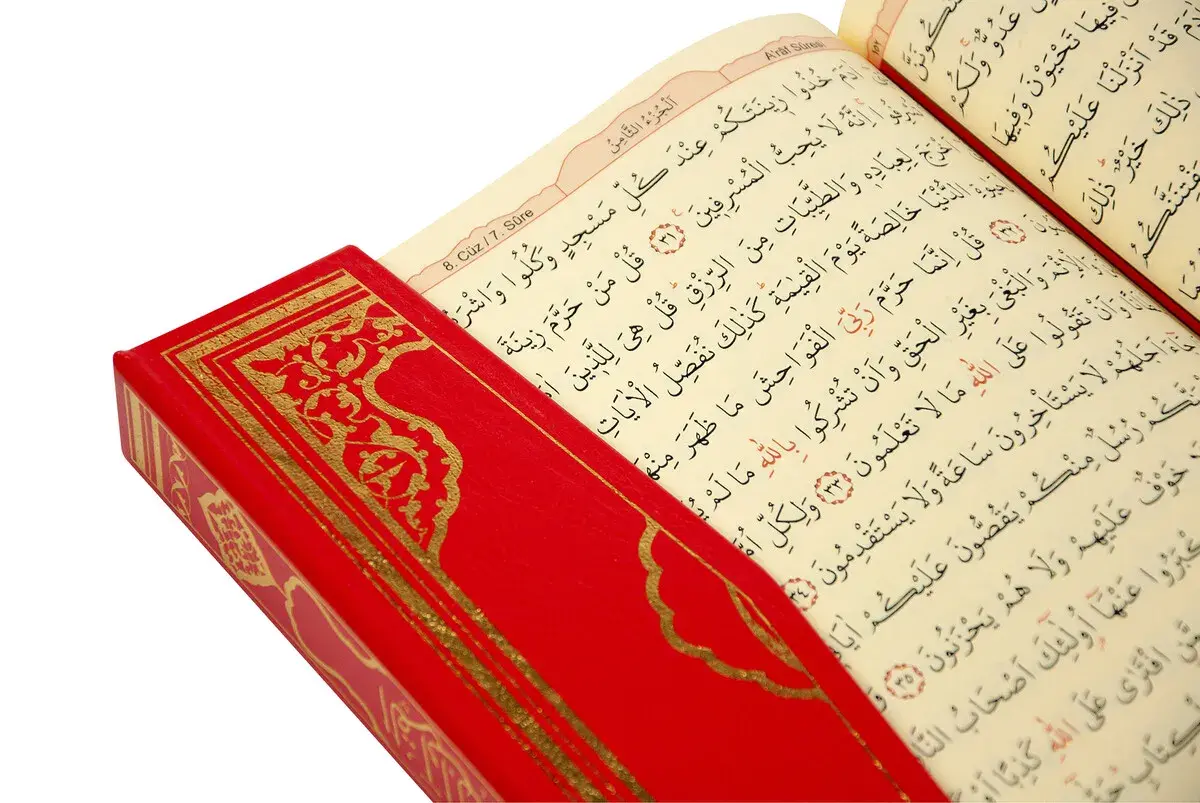 A'râf Sûresi
اَلْجُزْءُ الثَّامِنُ
8. Cüz / 7. Sûre
اٰدَمَ خُذُوا زٖينَتَكُمْ عِنْدَ كُلِّ مَسْجِدٍ وَكُلُوا وَاشْرَ
اِنَّهُ لَا يُحِبُّ الْمُسْرِفٖينَ ﴿٣١﴾ قُلْ مَنْ حَرَّمَ زٖينَةَ
اَخْرَجَ لِعِبَادِهٖ وَالطَّيِّبَاتِ مِنَ الرِّزْقِ قُلْ هِيَ لِلَّذٖينَ
الدُّنْيَا خَالِصَةً يَوْمَ الْقِيٰمَةِ كَذٰلِكَ نُفَصِّلُ الْاٰيَاتِ
﴿٣٢﴾ قُلْ اِنَّمَا حَرَّمَ رَبِّيَ الْفَوَاحِشَ مَا ظَهَرَ مِنْهَا
وَالْاِثْمَ وَالْبَغْيَ بِغَيْرِ الْحَقِّ وَاَنْ تُشْرِكُوا بِاللّٰهِ مَا لَمْ
وَاَنْ تَقُولُوا عَلَى اللّٰهِ مَا لَا تَعْلَمُونَ ﴿٣٣﴾ وَلِكُلِّ اُمَّ
اَجَلُهُمْ لَا يَسْتَأْخِرُونَ سَاعَةً وَلَا يَسْتَقْدِمُونَ ﴿٣٤﴾
رُسُلٌ مِنْكُمْ يَقُصُّونَ عَلَيْكُمْ اٰيَا
خَوْفٌ عَلَيْهِمْ وَلَا هُمْ يَحْزَنُونَ ﴿٣٥﴾
عَنْهَا اُولٰٓئِكَ اَصْحَابُ النَّا
افْتَرٰى عَلَى اللّٰهِ كَذِبًا اَوْ
عَدُوٌّ وَلَكُمْ
فٖيهَا تَحْيَوْنَ وَفٖيهَا
قَدْ اَنْزَلْنَا عَلَيْكُمْ
ذٰلِكَ خَيْرٌ ذٰلِكَ